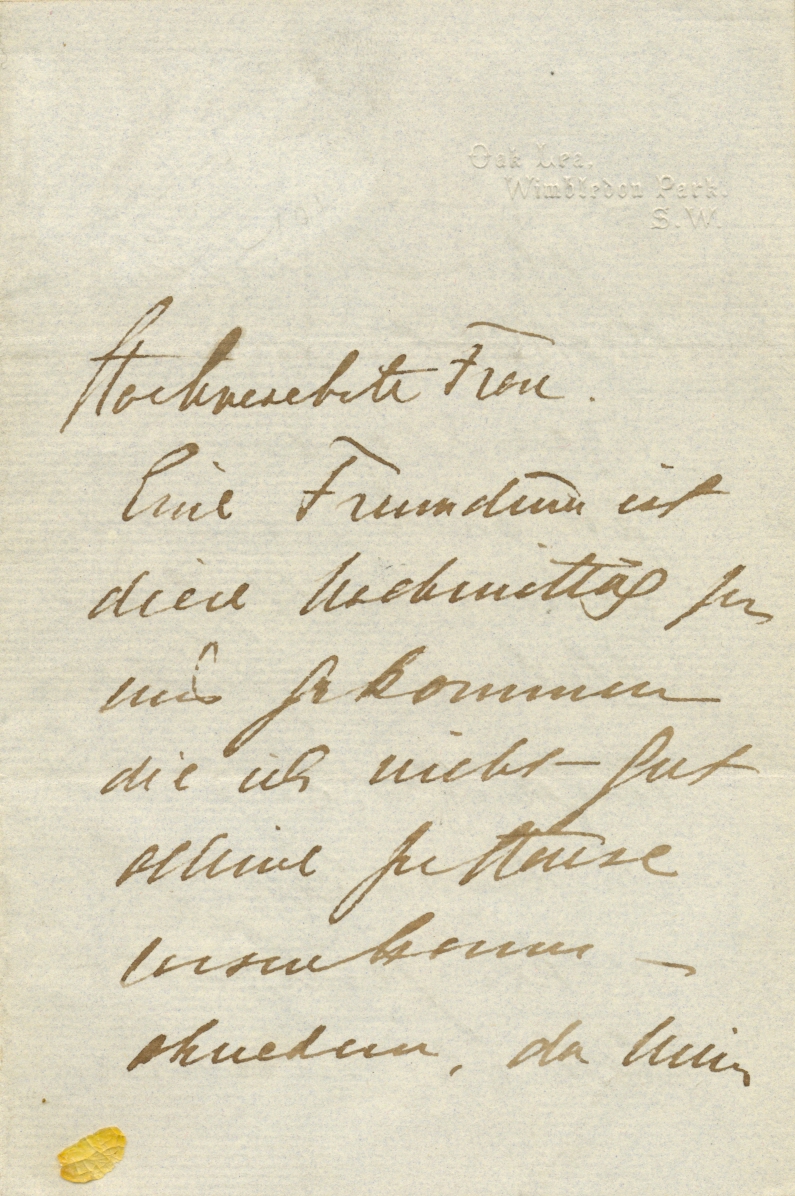 Oak Lea.
Wimbledon Park.
S.W.
Hochverehrte Frau.
Eine Freundinn ist
diese Nachmittag zu
uns gekommen
die ich nicht gut
alleine zu Hause
lassen kann –
ohnedem, da